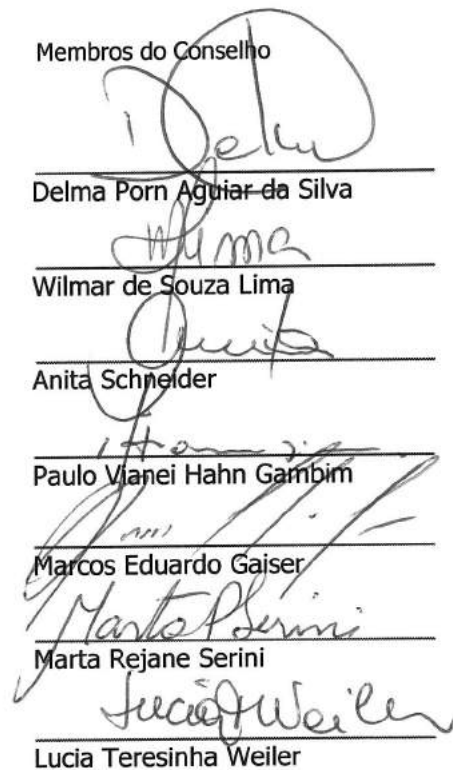 Membros do Conselho
Delma Porn Aguiar da Silva
Wilmar de Souza Lima
Anita Schneider
Paulo Vianei Hahn Gambim
Marcos Eduardo Gaiser
Marta P Serini
Marta Rejane Serini
Lucia T Weiler
Lucia Teresinha Weiler